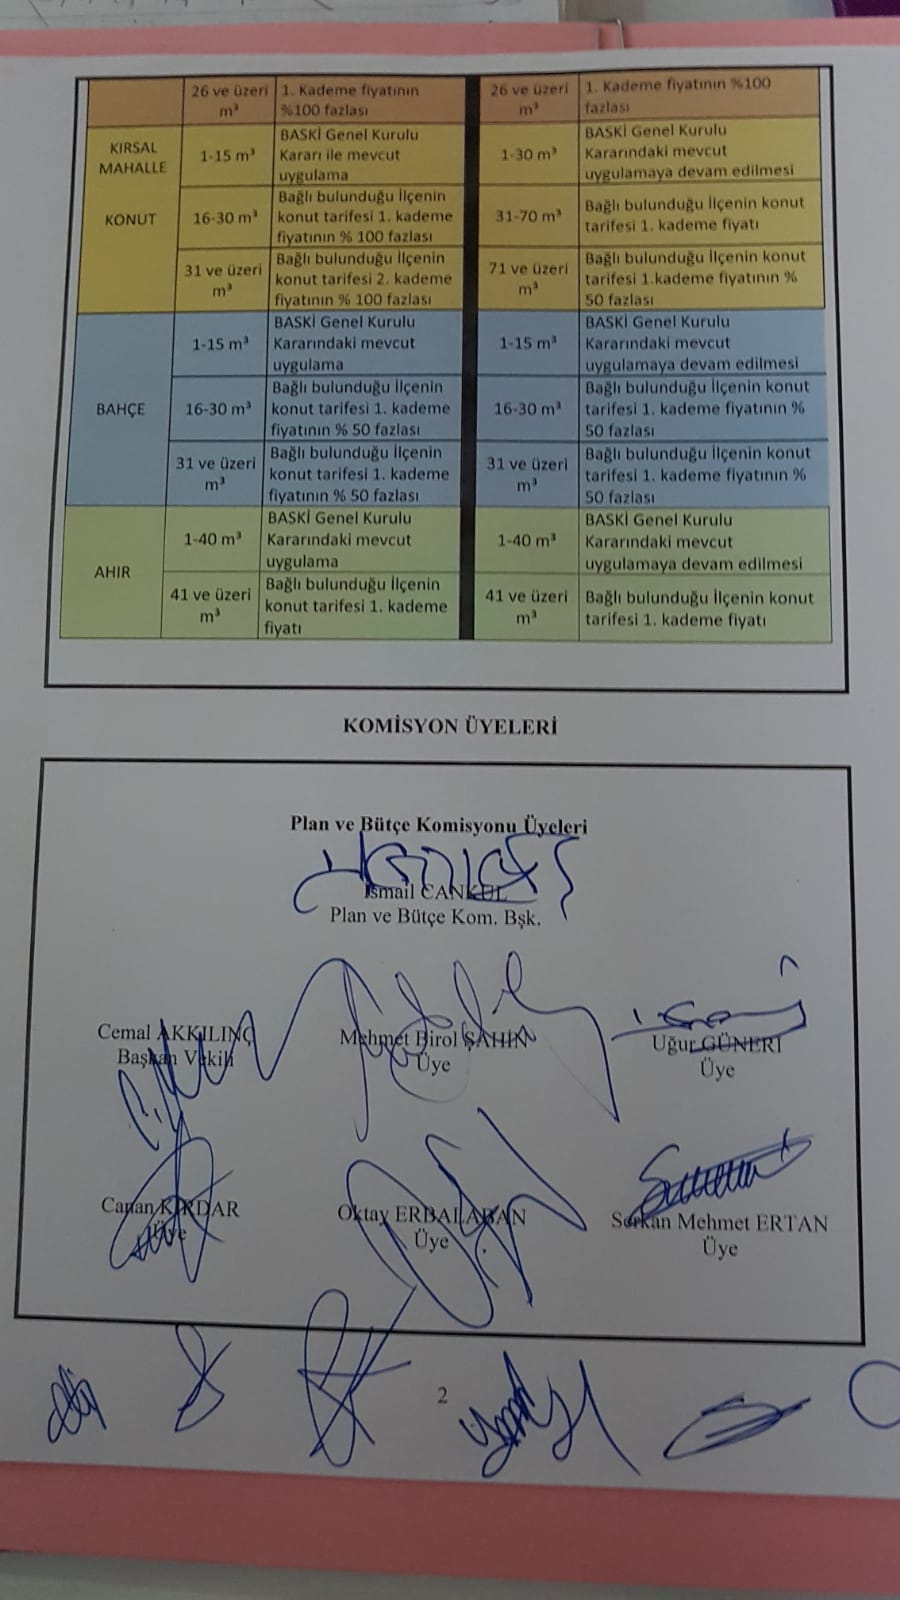 26 ve üzeri m³
1. Kademe fiyatının
%100 fazlası
26 ve üzeri m³
1. Kademe fiyatının %100
fazlası
KIRSAL
MAHALLE
KONUT
1-15 m³
BASKİ Genel Kurulu
Kararı ile mevcut
uygulama
1-30 m³
BASKİ Genel Kurulu
Kararındaki mevcut
uygulamaya devam edilmesi
16-30 m³
Bağlı bulunduğu İlçenin
konut tarifesi 1. kademe
fiyatının % 100 fazlası
31-70 m³
Bağlı bulunduğu İlçenin konut
tarifesi 1. kademe fiyatı
31 ve üzeri
m³
Bağlı bulunduğu İlçenin
konut tarifesi 2. kademe
fiyatının % 100 fazlası
71 ve üzeri
m³
Bağlı bulunduğu İlçenin konut
tarifesi 1.kademe fiyatının %
50 fazlası
BAHÇE
1-15 m³
BASKİ Genel Kurulu
Kararındaki mevcut
uygulama
1-15 m³
BASKİ Genel Kurulu
Kararındaki mevcut
uygulamaya devam edilmesi
16-30 m³
Bağlı bulunduğu İlçenin
konut tarifesi 1. kademe
fiyatının % 50 fazlası
16-30 m³
Bağlı bulunduğu İlçenin konut
tarifesi 1. kademe fiyatının %
50 fazlası
31 ve üzeri
m³
Bağlı bulunduğu İlçenin
konut tarifesi 1. kademe
fiyatının % 50 fazlası
31 ve üzeri
m³
Bağlı bulunduğu İlçenin konut
tarifesi 1. kademe fiyatının %
50 fazlası
AHIR
1-40 m³
BASKİ Genel Kurulu
Kararındaki mevcut
uygulama
1-40 m³
BASKİ Genel Kurulu
Kararındaki mevcut
uygulamaya devam edilmesi
41 ve üzeri
m³
Bağlı bulunduğu İlçenin
konut tarifesi 1. kademe
fiyatı
41 ve üzeri
m³
Bağlı bulunduğu İlçenin konut
tarifesi 1. kademe fiyatı
KOMİSYON ÜYELERİ
Plan ve Bütçe Komisyonu Üyeleri
İsmail CANKUL
Plan ve Bütçe Kom. Bşk.
Cemal AKKILINÇ
Başkan Vekili
Mehmet Birol ŞAHİN
Üye
Uğur GÜNERİ
Üye
Canan KIRDAR
Üye
Oktay ERBALABAN
Üye
Serkan Mehmet ERTAN
Üye
2